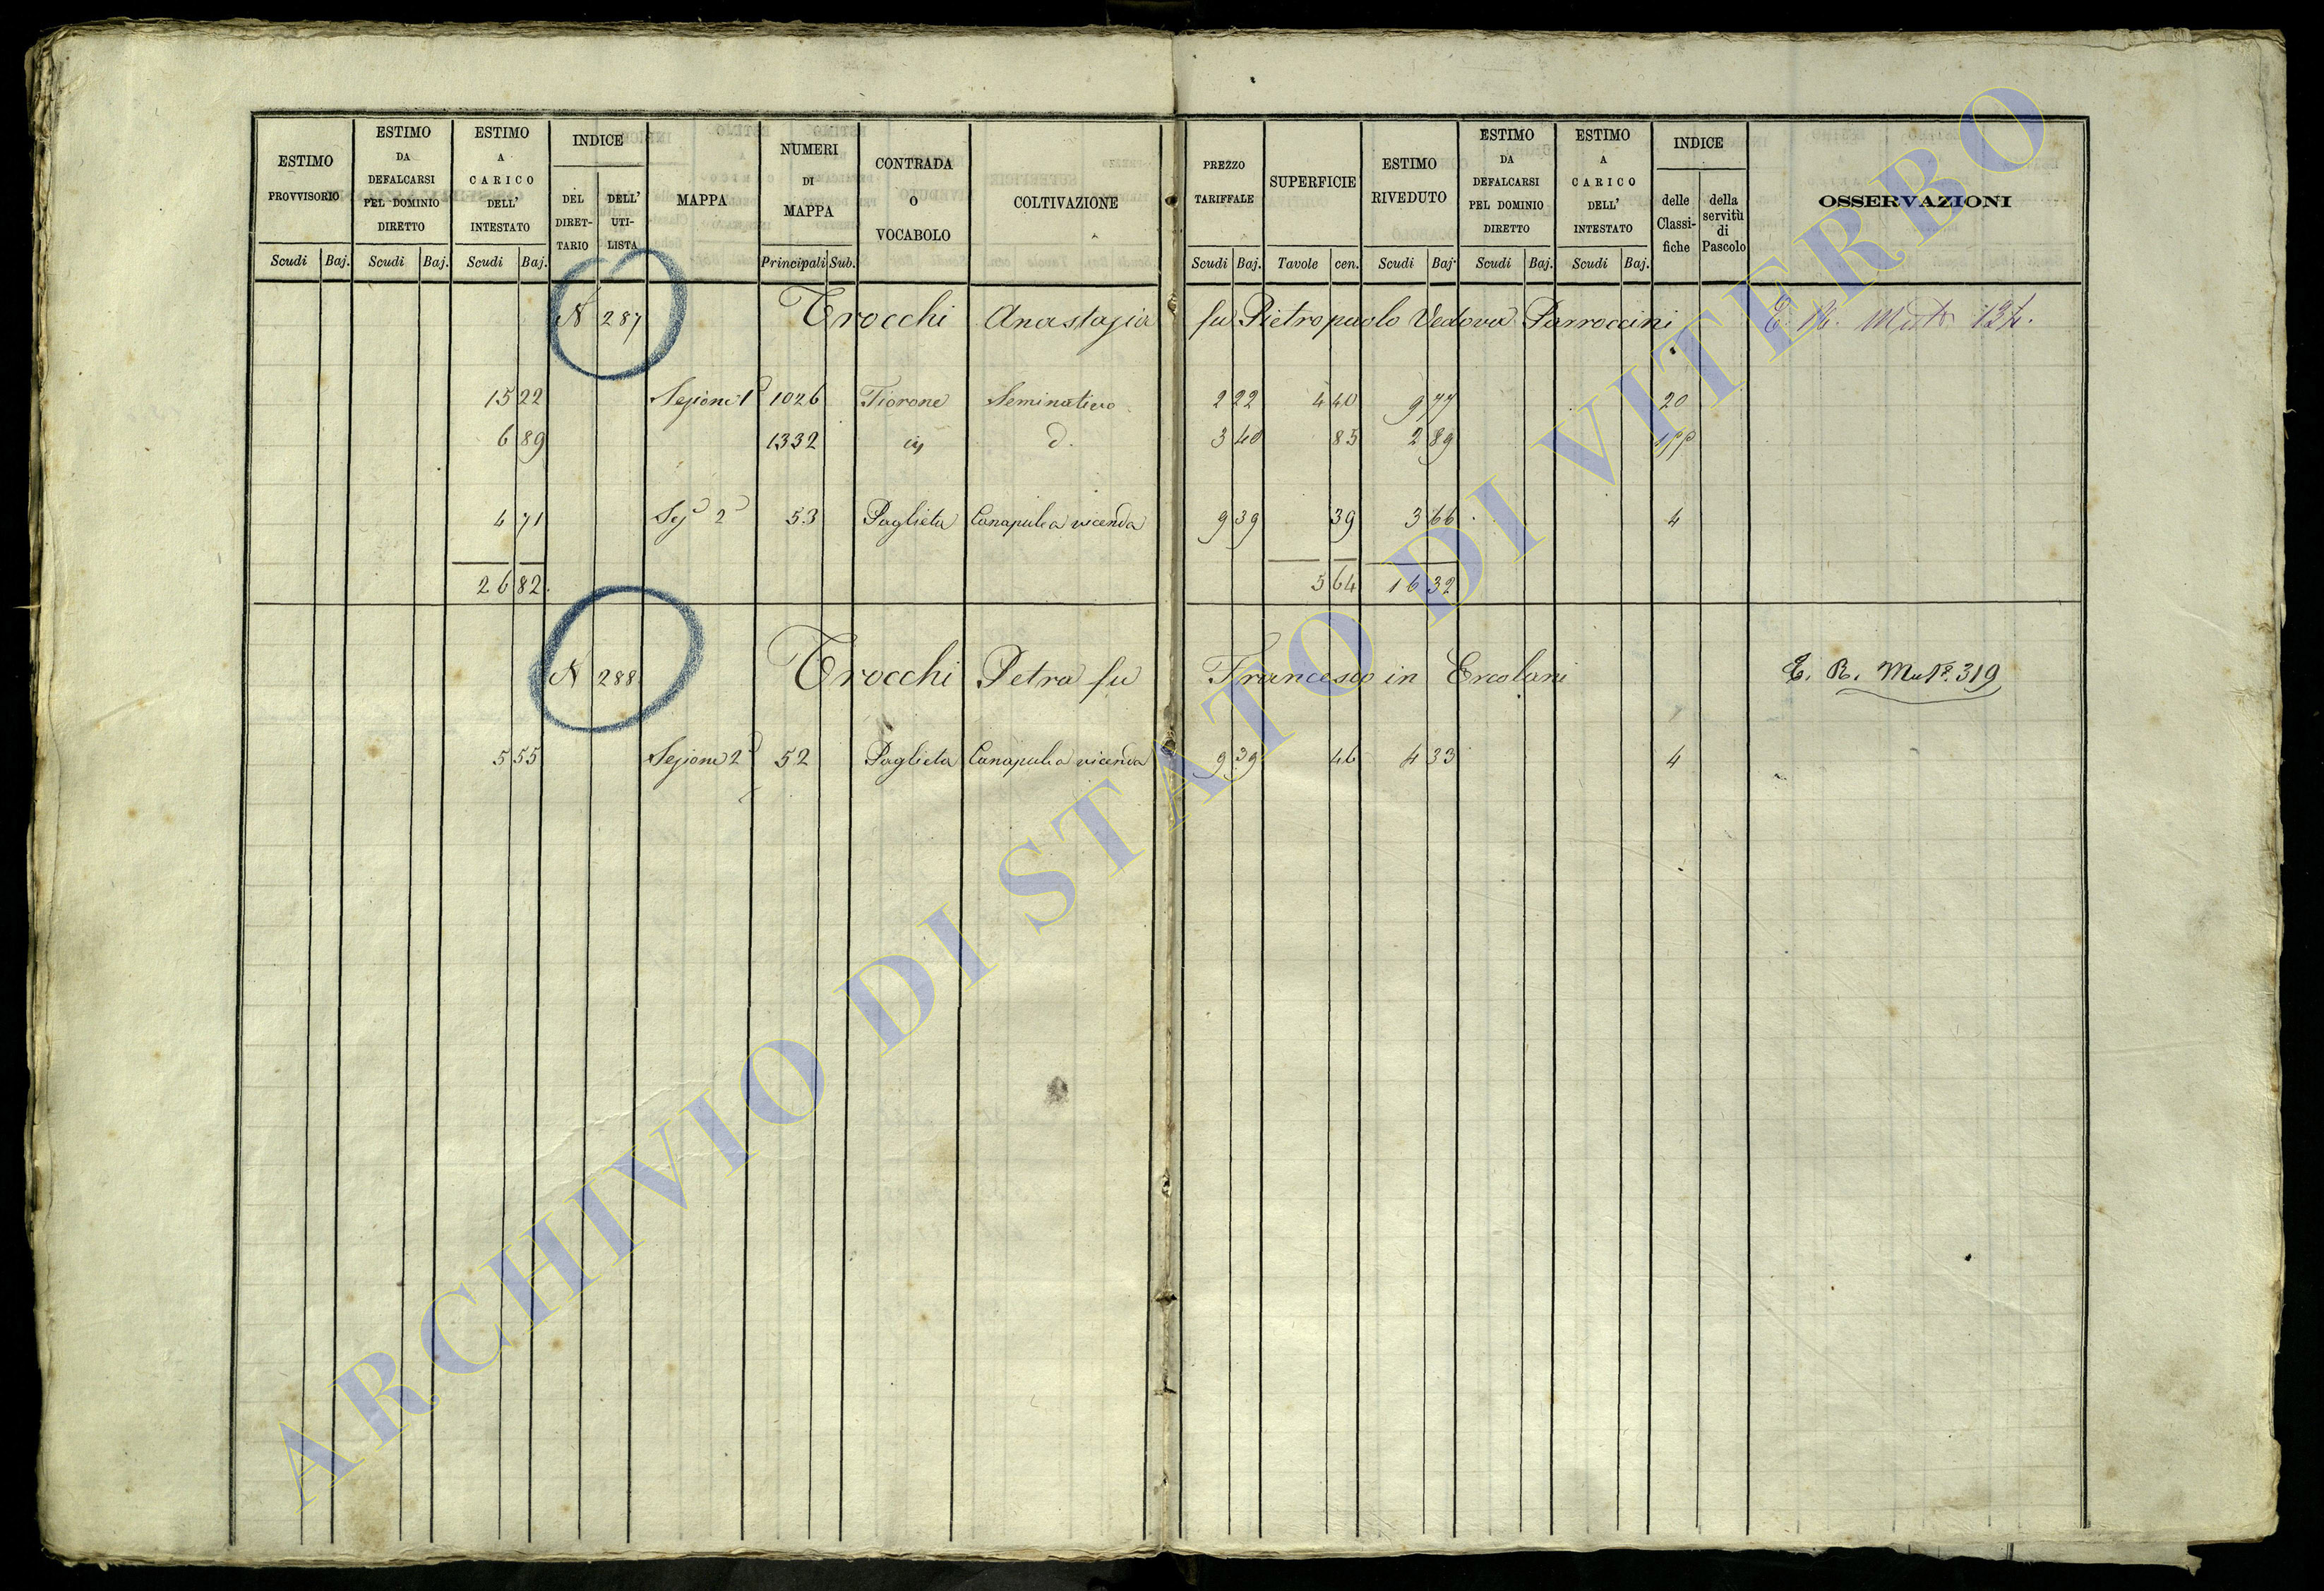 ESTIMO PROVVISORIO
Scudi Baj.
ESTIMO DA DEFALCARSI PEL DOMINIO DIRETTO
Scudi Baj.
ESTIMO A CARICO DELL' INTESTATO
Scudi Baj.
INDICE
DEL DIRET-TARIO
DELL' UTI-LISTA
MAPPA
NUMERI DI MAPPA
Principali Sub.
CONTRADA O VOCABOLO
COLTIVAZIONE
PREZZO TARIFFALE
Scudi Baj.
SUPERFICIE
Tavole cen.
ESTIMO RIVEDUTO
Scudi Baj.
ESTIMO DA DEFALCARSI PEL DOMINIO DIRETTO
Scudi Baj.
ESTIMO A CARICO DELL' INTESTATO
Scudi Baj.
INDICE
delle Classi-fiche
della servitù di Pascolo
OSSERVAZIONI
N 287 Trocchi Anastasia fu Pietropaolo Vedova Parroccini E. R. Mut
15 22 Sezione 1ª 1026 Fiorone Seminativo 2 22 4 40 9 77 20
6 89 1332 d. 3 40 85 2 89
4 71 Sezª 2ª 53 Paglieta Canapule a vicenda 9 39 39 3 66 4
26 82. 5 64 16 32
N 288 Trocchi Petra fu Francesco in Ercolani E. R. Mut.º 319
5 55 Sezione 2ª 52 Paglieta Canapule a vicenda 9 39 46 4 33 4
ARCHIVIO DI STATO DI VITERBO